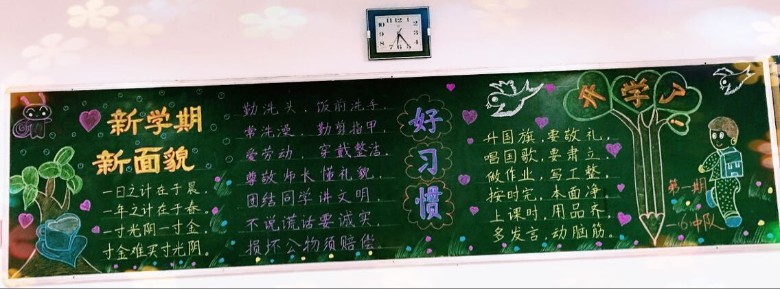 新学期
新面貌
一日之计在于晨。
一年之计在于春。
一寸光阴一寸金。
寸金难买寸光阴。
勤洗头、饭前洗手。
常洗澡、勤剪指甲。
爱劳动、穿戴整洁。
尊敬师长懂礼貌。
团结同学讲文明。
不说谎话要诚实。
损坏公物须赔偿。
好习惯
升国旗,要敬礼,
唱国歌,要肃立。
做作业,写工整,
按时完,本面净。
上课时,用品齐。
多发言,动脑筋。
开学了!
第一期
一6中队